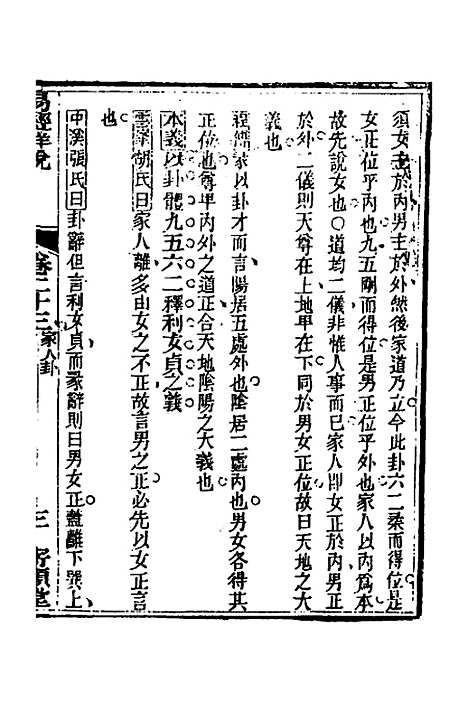 須女主於內男主於外然後家道乃立今此卦六二柔而得位是
女正位乎內也九五剛而得位是男正位乎外也家人以內爲本
故先說女也〇道均二儀非惟人事而已家人卽女正於內男正
於外二儀則天尊在上地卑在下同於男女正位故曰天地之大
義也
程傳彖以卦才而言陽居五處外也陰居二處內也男女各得其
正位也尊卑內外之道正合天地陰陽之大義也
本義以卦體九五六二釋利女貞之義
雲峯胡氏曰家人離多由女之不正故言男之正必先以女正言
也
中溪張氏曰卦辭但言利女貞而彖辭則曰男女正蓋離下巽上
易經詳說
卷二十三 家人卦
三 寄願堂